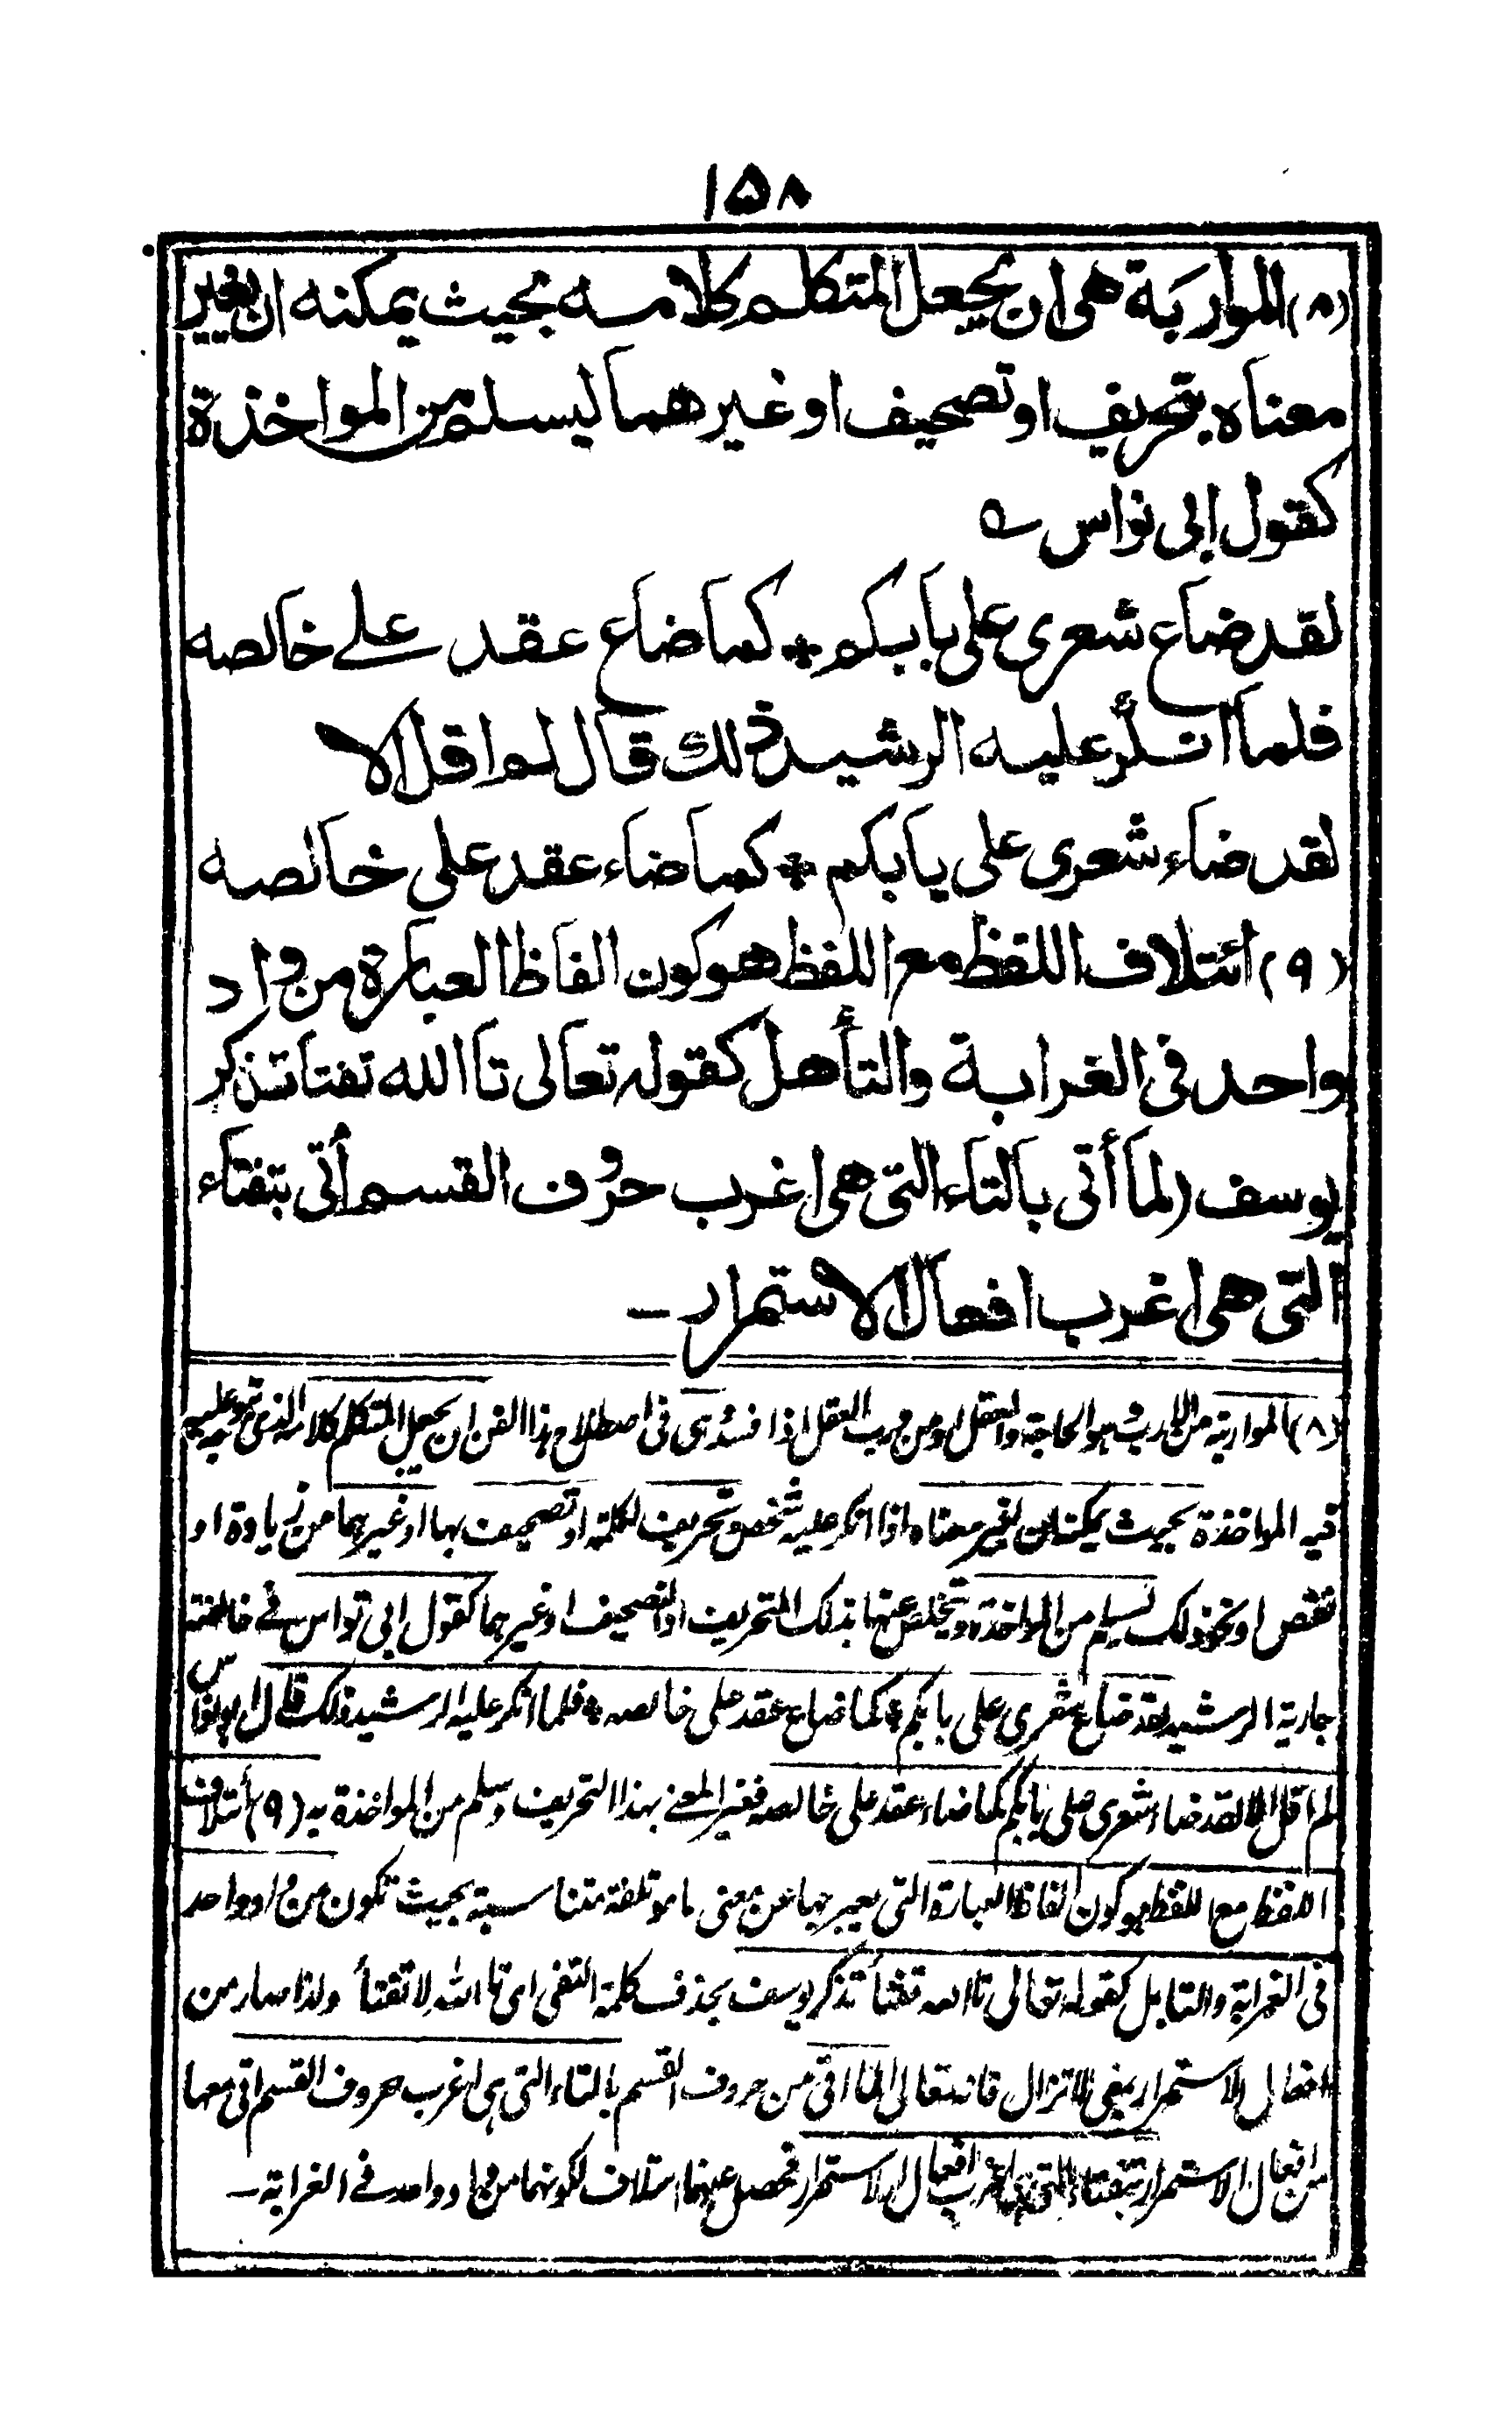 ١٥٨
(٨) المواربة هى ان يجعل المتكلم كلامه بحيث يمكنه ان يغير
معناه بتحريف او تصحيف او غيرهما ليسلم من المواخذة
كقول ابى نواس ؎
لقد ضاع شعرى على بابكم * كما ضاع عقد على خالصه
فلما انكر عليه الرشيد ذلك قال لم اقل الا
لقد ضاء شعرى على بابكم * كما ضاء عقد على خالصه
(٩) ائتلاف اللفظ مع اللفظ هو كون الفاظ العبارة من واد
واحد فى الغرابة والتأهل كقوله تعالى تاالله تفتا تذكر
يوسف (لما أتى بالتاء التى هى اغرب حروف القسم أتى بتفتاء
التى هى اغرب افعال الاستمرار ـ
(٨) المواربة من الارب وهو الحاجة والعقل او من ورب العقل اذا فسد وهى فى اصطلاح هذا الفن ان يجعل المتكلم كلامه الذى عليه
فيه المواخذة بحيث يمكنه ان يغير معناه اذا انكر عليه شخص بتحريف لكلمته او تصحيف بها او غيرهما من زيادة او
نقص او نحو ذلك ليسلم من المواخذة ويتخلص عنها بذلك التحريف او التصحيف او غيرهما كقول ابى نواس فى خالصة
جارية الرشيد لقد ضاع شعرى على بابكم * كما ضاع عقد على خالصه * فلما انكر عليه الرشيد ذلك قال ابو نواس
لم اقل الا لقد ضاء شعرى على بابكم كما ضاء عقد على خالصه فغير المعنى بهذا التحريف وسلم من المواخذة به (٩) أئتلاف
اللفظ مع اللفظ هو كون الفاظ العبارة التى يعبر بها عن معنى ما مؤتلفة متناسبة بحيث تكون من واد واحد
فى الغرابة والتاهل كقوله تعالى تاالله تفتأ تذكر يوسف بحذف كلمة النفى اى تا الله لا تفتأ ولذا صار من
افعال الاستمرار بمعنى لا تزال فانه تعالى لما اتى من حروف القسم بالتاء التى هى اغرب حروف القسم اتى معها
من افعال الاستمرار بتفتاء التى هى اغرب افعال الاستمرار فحصل بينهما ائتلاف لكونهما من واد واحد فى الغرابة ـ